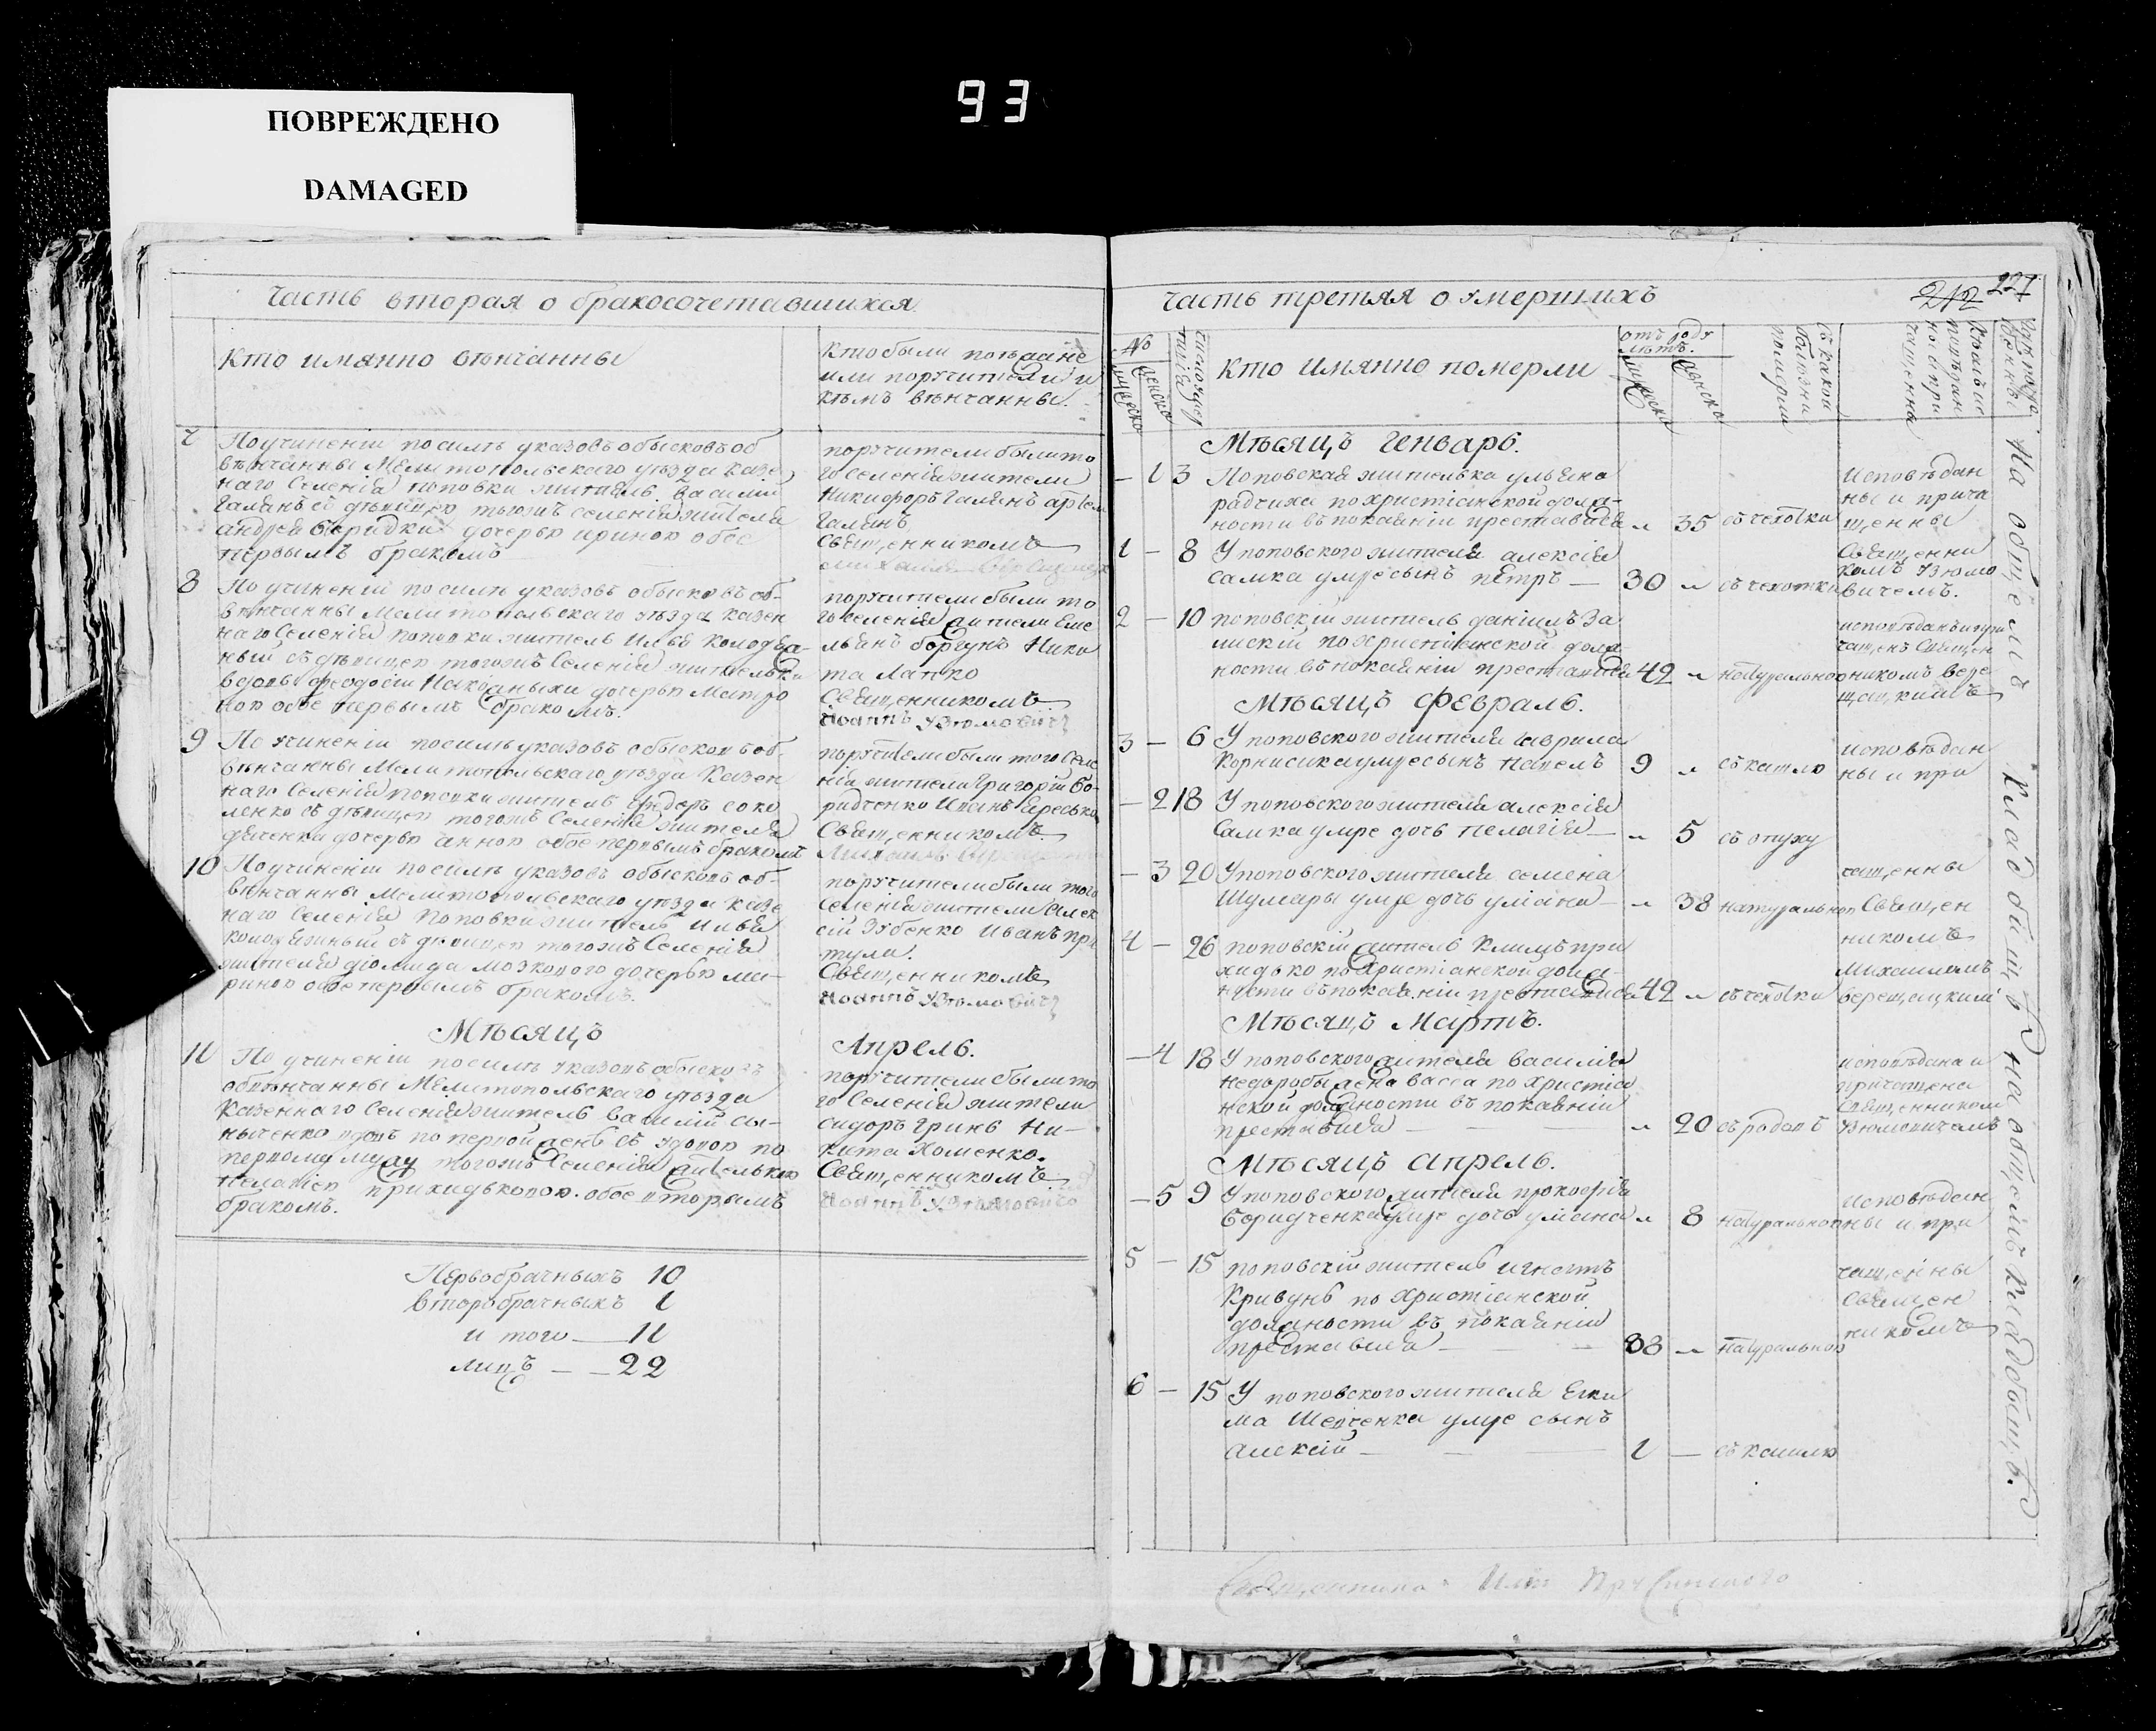 ПОВРЕЖДЕНО
DAMAGED
93
Часть вторая о бракосочетавшихся
Кто имянно вѣнчанны
Кто были поѣзжане
или поручители и
кѣмъ вѣнчанны.
7
По учиненіи по силѣ указовъ обысковъ об
вѣнчанны Мелитопольскаго уѣзда казе
наго Селенія поповки житель василій
Галянъ съ дѣвицею тогожъ селенія жителя
андрея дочерью ириною обое
первымъ бракомъ
поручители были то
го селенія жители
Никифоръ Галянъ
Галянъ
Священникомъ
8
По учиненіи по силѣ указовъ обысковъ об-
вѣнчанны мелитопольскаго уѣзда казен
наго Селенія поповки житель Илья колодя-
ный съ дѣвицею тогожъ Селенія жительки
вдовы феодосіи дочерью Матро
ною обое первымъ бракомъ.
поручители были то
го селенія жители Еме
льянъ боргунъ Ники
та Лапко
Священникомъ
Иоаннъ Узюмовичъ
9
По учиненіи по силѣ указовъ обысковъ об-
вѣнчанны Мелитопольскаго уѣзда Казен
наго Селенія поповки житель Федоръ соко
ленко съ дѣвицею тогожъ Селенія жителя
дяченка дочерью анною обое первымъ бракомъ
поручители были того Селе
нія жители Григорій Бо-
ридченко Иванъ Ересько
Священникомъ
10
По учиненіи по силѣ указовъ обысковъ об-
вѣнчанны мелитопольскаго уѣзда казе
наго Селенія Поповки житель Илья
колодяжный съ дѣвицею тогожъ Селенія
жителя діомида мозкового дочерью ма-
риною обое первымъ бракомъ.
поручители были того
Селенія жители Алек
сій Зубенко Иванъ при
тула.
Священникомъ
Иоаннъ Узюмовичъ
Мѣсяцъ
Апрель.
11
По учиненіи по силѣ указовъ обысковъ
обвѣнчанны Мелитопольскаго уѣзда
Казеннаго Селенія житель василій сы-
ниченко вдовъ по первой женѣ съ удовою по
первому мужу тогожъ Селенія жителькою
пелагіею прихидьковою. обое вторымъ
бракомъ.
поручители были то
го Селенія жители
сидоръ гринь Ни-
кита Хоменко.
Священникомъ
Иоаннъ Узюмовичъ
Первобрачныхъ 10
Второбрачныхъ 1
и того — 11
лицъ — 22
Часть третяя о умершихъ
212 221
№
мужеска
женска
число
Кто Имянно померли
отъ роду
лѣтъ.
мужеска
женска
съ какой
болѣзни
померли
Кѣмъ ис
повѣдан
ны и при
чащенны
Мѣсяцъ Генварь.
— 1 3 Поповская жителька ульяна
радчиха по христіанской долж-
ности въ покаяніи преставися „ 35 съ чехотки
Исповѣдан
ны и прича
щенны
1 — 8 У поповского жителя алексія
самка умре сынъ петръ — 30 „ съ чехотки
Священни
комъ Узюмо
вичемъ.
2 — 10 поповскій житель даніилъ За
лискій по христіянской долж
ности въ покаяніи преставися 42 „ натурально
исповѣданъ и при
чащенъ Священ
никомъ Вере
щацкимъ
Мѣсяцъ Февраль.
3 — 6 У поповского жителя гаврила
Корнисика умре сынъ Павелъ 9 „ съ кашлю
исповѣдан
ны и при
— 2 18 У поповского жителя алексія
Самка умре дочь пелагія — „ 5 съ опуху
— 3 20 У поповского жителя семена
Шулжары умре дочь уліяна — „ 38 натурально
чащенны
Священ
4 — 26 поповскій житель Климъ при
хидько по христіанской долж-
ности въ покаяніи преставися 42 „ съ чехотки
никомъ
Михаиломъ
верещацкимъ
Мѣсяцъ Мартъ.
— 4 18 У поповского жителя василія
недоробы жена васса по христіа
нской должности въ покаяніи
преставися — „ 20 съ родовъ
исповѣдана и
причащена
Священникомъ
Узюмовичемъ
Мѣсяцъ Апрель.
— 5 9 У поповского жителя прокофія
боридченка умре дочь уліана „ 8 натурально
Исповѣдан
ны и при
5 — 15 поповскій житель игнатъ
Кривунь по христіанской
должности въ покаяніи
преставися — 88 „ натурально
чащенны
Священ
никомъ
6 — 15 У поповского жителя Еки
ма Шевченка умре сынъ
алексій — 1 — съ кашлю
На общемъ кладбищѣ
на общемъ кладбищѣ.